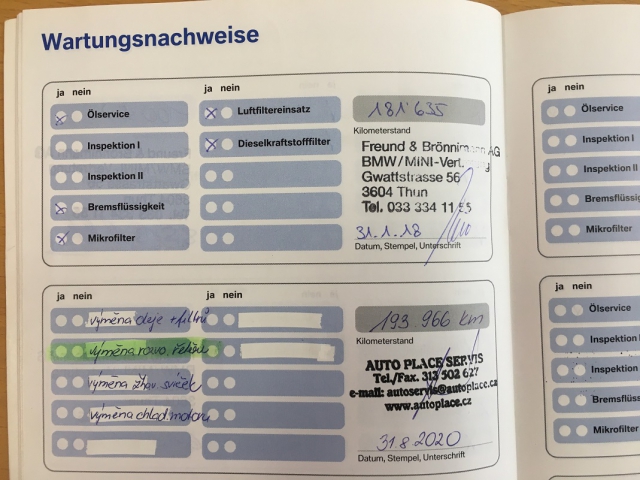 Wartungsnachweise
ja nein
ja nein
Ölservice
Inspektion I
Inspektion II
Bremsflüssigkeit
Mikrofilter
Luftfiltereinsatz
Dieselkraftstofffilter
181'635
Kilometerstand
Freund & Brönnimann AG
BMW/MINI-Vert.
Gwattstrasse 56
3604 Thun
Tel. 033 334 11 55
31.1.18
Datum, Stempel, Unterschrift
ja nein
ja nein
výměna oleje + filtrů
výměna rozvo. řetězu
výměna žhav. svíček
výměna chlad. motoru
193 966 km
Kilometerstand
AUTO PLACE SERVIS
Tel./Fax. 313 502 627
e-mail: autoservis@autoplace.cz
www.autoplace.cz
31.8.2020
Datum, Stempel, Unterschrift
ja nein
Ölservice
Inspektion I
Inspektion
Mikrofilter
ja nein
Ölservice
Inspektion
Inspektion
Mikrofilter